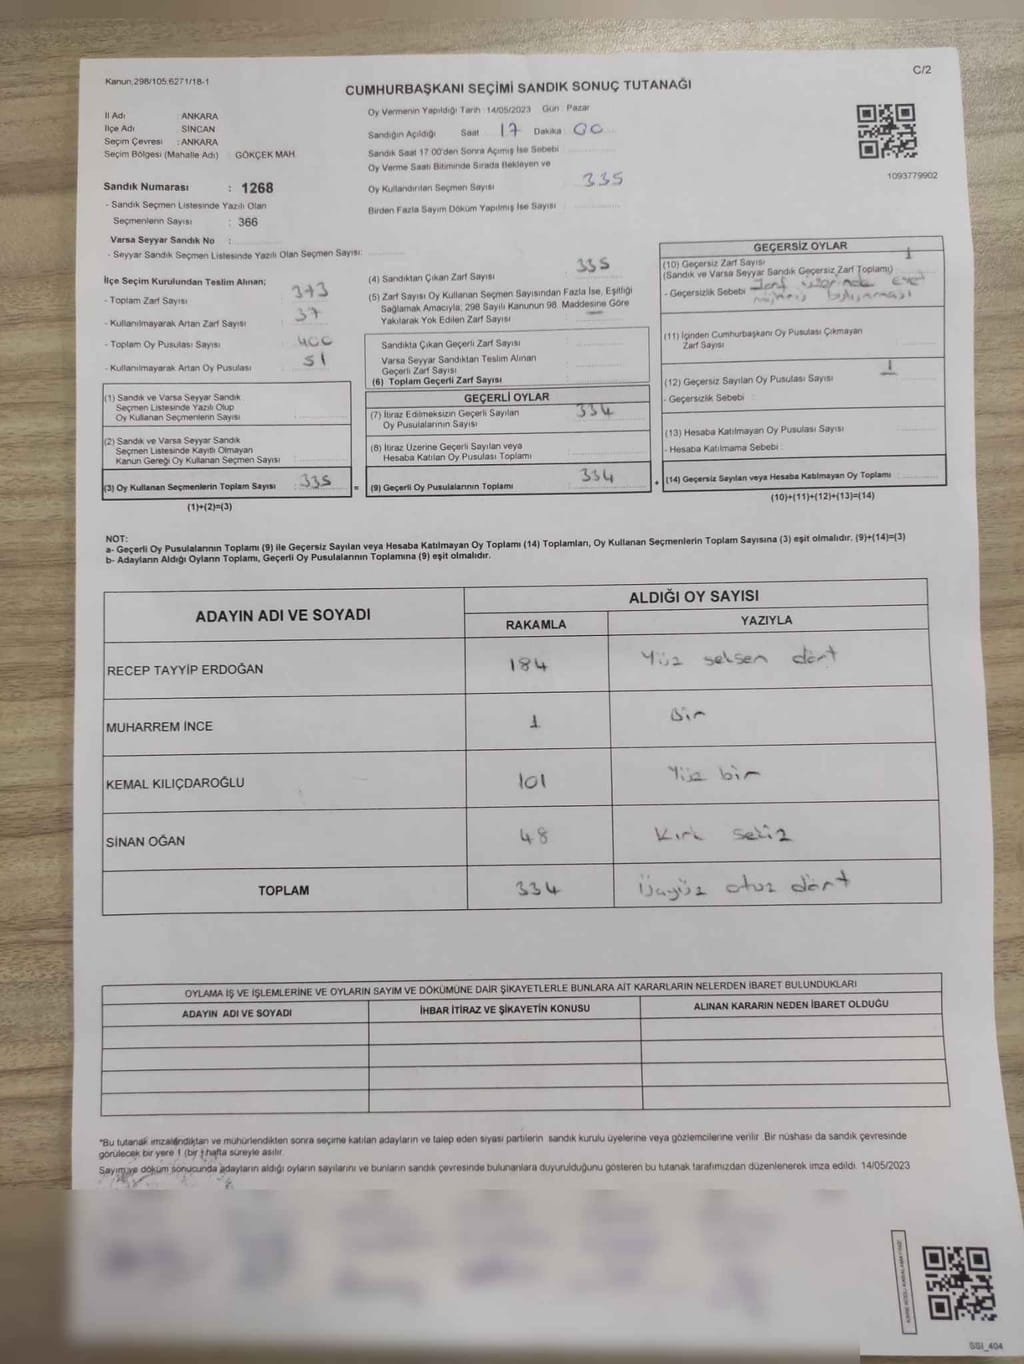 Kanun.298/105.6271/18-1
C/2
CUMHURBAŞKANI SEÇİMİ SANDIK SONUÇ TUTANAĞI
İl Adı : ANKARA
İlçe Adı : SİNCAN
Seçim Çevresi : ANKARA
Seçim Bölgesi (Mahalle Adı) : GÖKÇEK MAH.
Sandık Numarası : 1268
- Sandık Seçmen Listesinde Yazılı Olan
Seçmenlerin Sayısı : 366
Varsa Seyyar Sandık No :
- Seyyar Sandık Seçmen Listesinde Yazılı Olan Seçmen Sayısı:
Oy Vermenin Yapıldığı Tarih :14/05/2023 Gün : Pazar
Sandığın Açıldığı Saat 17 Dakika 00
Sandık Saat 17:00'den Sonra Açımış İse Sebebi
Oy Verme Saati Bitiminde Sırada Bekleyen ve
Oy Kullandırılan Seçmen Sayısı 335
Birden Fazla Sayım Döküm Yapılmış İse Sayısı
1093779902
İlçe Seçim Kurulundan Teslim Alınan;
- Toplam Zarf Sayısı 373
- Kullanılmayarak Artan Zarf Sayısı 37
- Toplam Oy Pusulası Sayısı 400
- Kullanılmayarak Artan Oy Pusulası 51
(1) Sandık ve Varsa Seyyar Sandık
Seçmen Listesinde Yazılı Olup
Oy Kullanan Seçmenlerin Sayısı
(2) Sandık ve Varsa Seyyar Sandık
Seçmen Listesinde Kayıtlı Olmayan
Kanun Gereği Oy Kullanan Seçmen Sayısı
(3) Oy Kullanan Seçmenlerin Toplam Sayısı : 335
(1)+(2)=(3)
(4) Sandıktan Çıkan Zarf Sayısı 335
(5) Zarf Sayısı Oy Kullanan Seçmen Sayısından Fazla İse, Eşitliği
Sağlamak Amacıyla, 298 Sayılı Kanunun 98. Maddesine Göre
Yakılarak Yok Edilen Zarf Sayısı —
Sandıkta Çıkan Geçerli Zarf Sayısı
Varsa Seyyar Sandıktan Teslim Alınan
Geçerli Zarf Sayısı
(6) Toplam Geçerli Zarf Sayısı
GEÇERLİ OYLAR
(7) İtiraz Edilmeksizin Geçerli Sayılan
Oy Pusulalarının Sayısı 334
(8) İtiraz Üzerine Geçerli Sayılan veya
Hesaba Katılan Oy Pusulası Toplamı
(9) Geçerli Oy Pusulalarının Toplamı 334
=
+
GEÇERSİZ OYLAR
(10) Geçersiz Zarf Sayısı 1
(Sandık ve Varsa Seyyar Sandık Geçersiz Zarf Toplamı)
- Geçersizlik Sebebi Zarf üzerinde evet
mührü bulunması
(11) İçinden Cumhurbaşkanı Oy Pusulası Çıkmayan
Zarf Sayısı
(12) Geçersiz Sayılan Oy Pusulası Sayısı 1
- Geçersizlik Sebebi :
(13) Hesaba Katılmayan Oy Pusulası Sayısı
- Hesaba Katılmama Sebebi :
(14) Geçersiz Sayılan veya Hesaba Katılmayan Oy Toplamı
(10)+(11)+(12)+(13)=(14)
NOT:
a- Geçerli Oy Pusulalarının Toplamı (9) ile Geçersiz Sayılan veya Hesaba Katılmayan Oy Toplamı (14) Toplamları, Oy Kullanan Seçmenlerin Toplam Sayısına (3) eşit olmalıdır. (9)+(14)=(3)
b- Adayların Aldığı Oyların Toplamı, Geçerli Oy Pusulalarının Toplamına (9) eşit olmalıdır.
ADAYIN ADI VE SOYADI
ALDIĞI OY SAYISI
RAKAMLA YAZIYLA
RECEP TAYYİP ERDOĞAN 184 Yüz seksen dört
MUHARREM İNCE 1 Bir
KEMAL KILIÇDAROĞLU 101 Yüz bir
SİNAN OĞAN 48 Kırk sekiz
TOPLAM 334 Üçyüz otuz dört
OYLAMA İŞ VE İŞLEMLERİNE VE OYLARIN SAYIM VE DÖKÜMÜNE DAİR ŞİKAYETLERLE BUNLARA AİT KARARLARIN NELERDEN İBARET BULUNDUKLARI
ADAYIN ADI VE SOYADI İHBAR İTİRAZ VE ŞİKAYETİN KONUSU ALINAN KARARIN NEDEN İBARET OLDUĞU
*Bu tutanak imzalandıktan ve mühürlendikten sonra seçime katılan adayların ve talep eden siyasi partilerin sandık kurulu üyelerine veya gözlemcilerine verilir. Bir nüshası da sandık çevresinde
görülecek bir yere 1 (bir) hafta süreyle asılır.
Sayım ve döküm sonucunda adayların aldığı oyların sayılarını ve bunların sandık çevresinde bulunanlara duyurulduğunu gösteren bu tutanak tarafımızdan düzenlenerek imza edildi. 14/05/2023
SSI_404